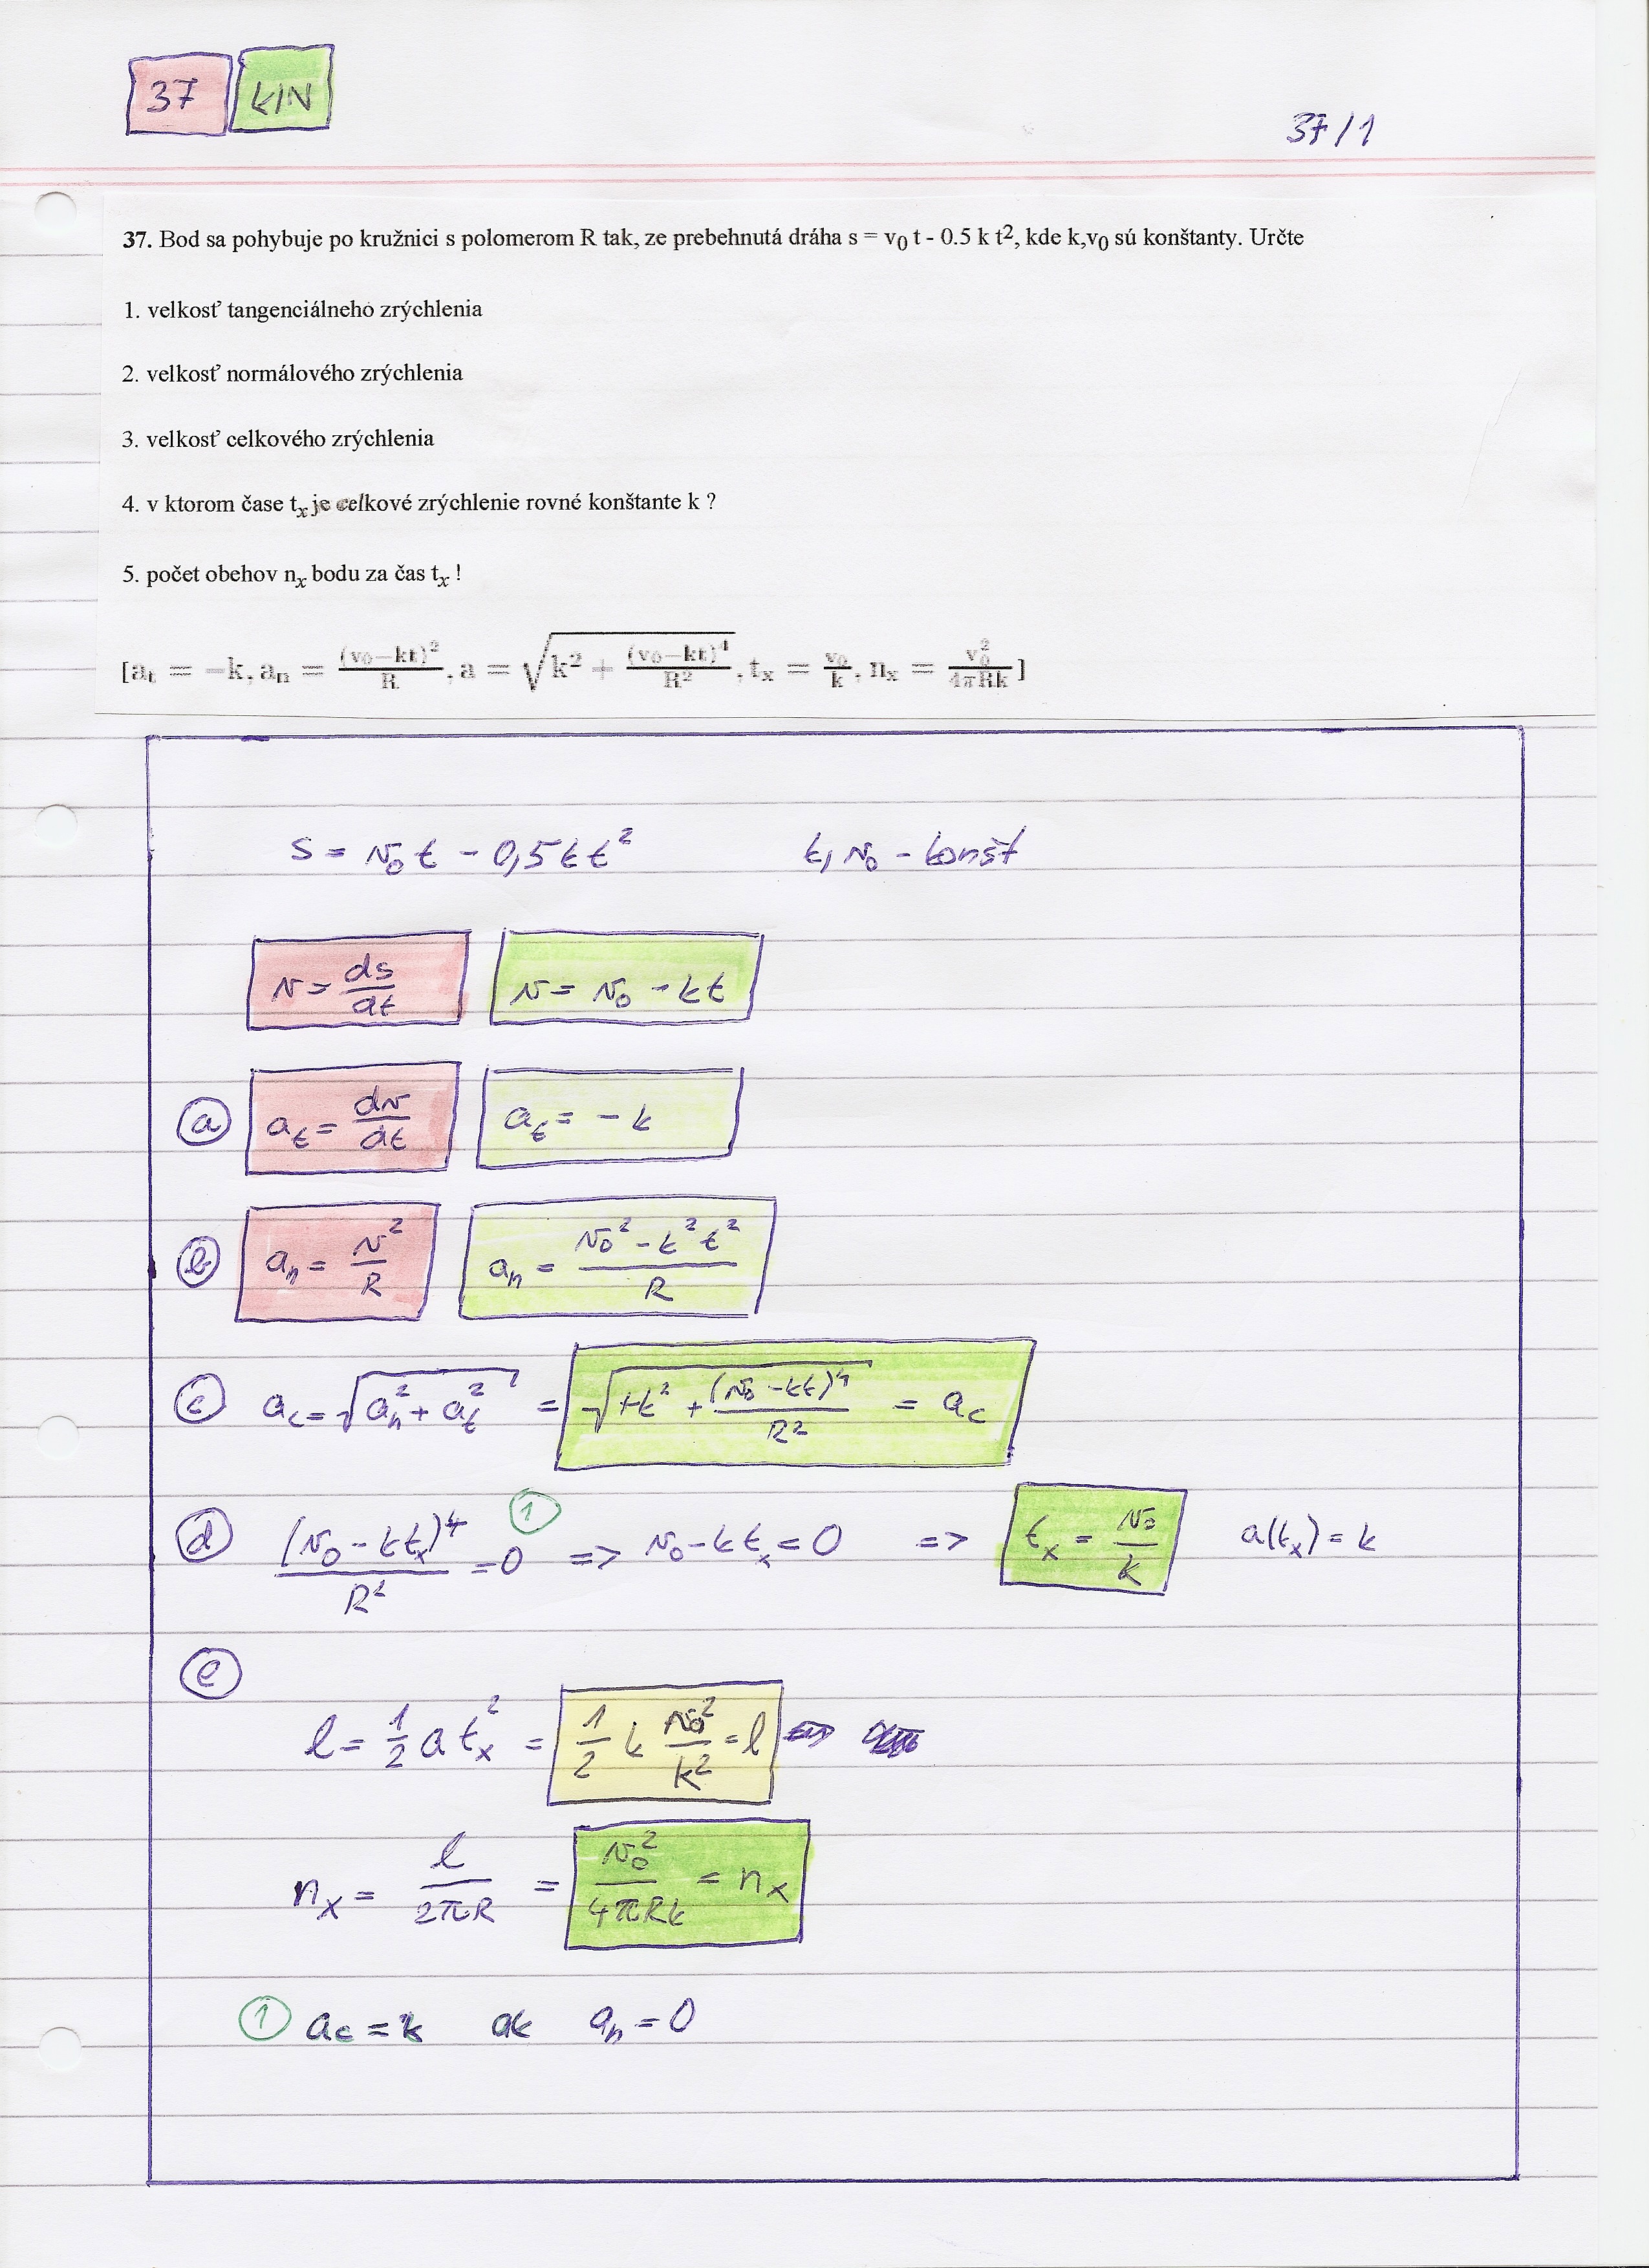 37 KIN
37/1
37. Bod sa pohybuje po kružnici s polomerom R tak, ze prebehnutá dráha s = v₀ t - 0.5 k t², kde k,v₀ sú konštanty. Určte
1. velkosť tangenciálneho zrýchlenia
2. velkosť normálového zrýchlenia
3. velkosť celkového zrýchlenia
4. v ktorom čase tₓ je celkové zrýchlenie rovné konštante k ?
5. počet obehov nₓ bodu za čas tₓ !
[aₜ = −k, aₙ = (v₀−kt)²/R, a = √(k² + (v₀−kt)⁴/R²), tₓ = v₀/k, nₓ = v₀²/4πRk]
s = v₀ t - 0,5 k t² k, v₀ - konšt
v = ds/dt v = v₀ - kt
a aₜ = dv/dt aₜ = - k
b aₙ = v²/R aₙ = v₀² - k² t²/R
c a_c = √(aₙ² + aₜ²) = √(+k² + (v₀ - kt)⁴/R²) = a_c
d (v₀ - ktₓ)⁴/R² = 0 ① => v₀ - ktₓ = 0 => tₓ = v₀/k a(tₓ) = k
e
l = 1/2 a tₓ² = 1/2 k v₀²/k² = l
nₓ = l/2πR = v₀²/4πRk = nₓ
① a_c = k ak aₙ = 0